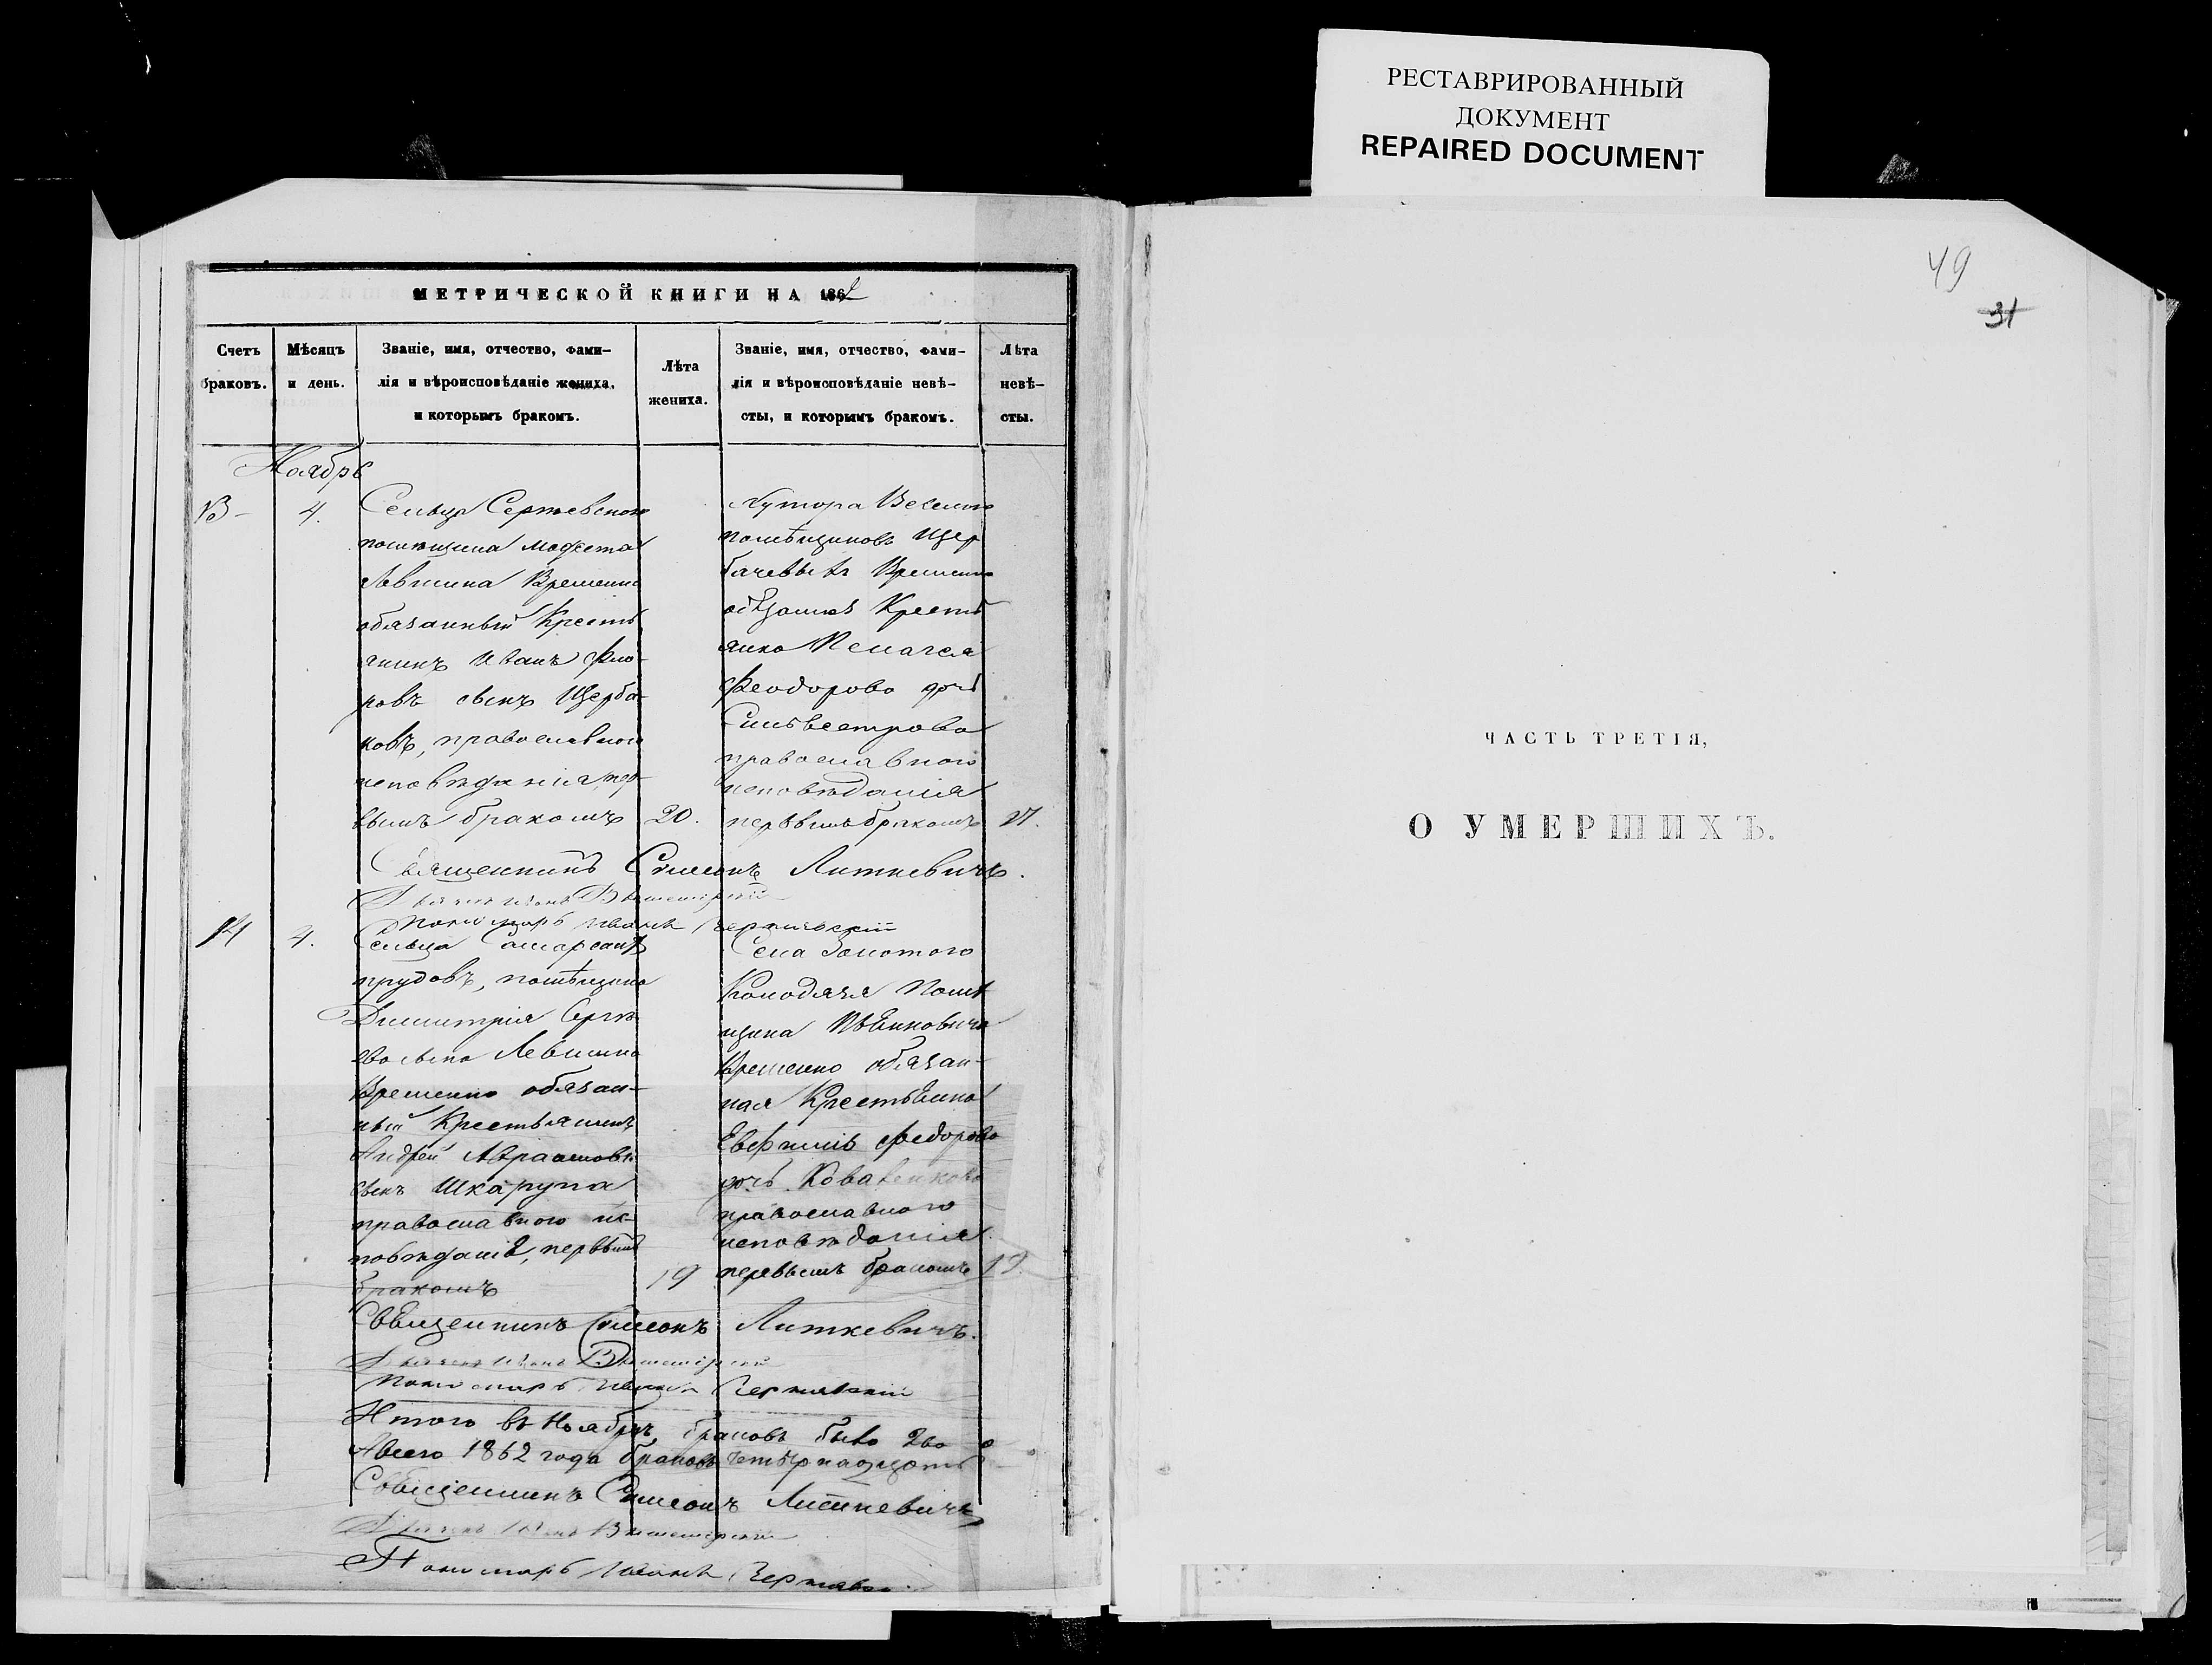 РЕСТАВРИРОВАННЫЙ
ДОКУМЕНТ
REPAIRED DOCUMENT
МЕТРИЧЕСКОЙ КНИГИ НА 1862
Счетъ браковъ.
Мѣсяцъ и день.
Званіе, имя, отчество, фами-
лія и вѣроисповѣданіе жениха,
и которымъ бракомъ.
Лѣта жениха.
Званіе, имя, отчество, фами-
лія и вѣроисповѣданіе невѣ-
сты, и которымъ бракомъ.
Лѣта невѣ-
сты.
Ноябрь
13 4.
Сельца Сергіевскаго
помѣщика Модеста
Левшина Временно
обязанный Кресть
янинъ Иванъ
сынъ Щерба-
ковъ, православнаго
исповѣданія, пер-
вымъ бракомъ 20.
Хутора Веселаго
помѣщиковъ Щер
бачевыхъ Временно
обязанная Кресть
янка Пелагея
Феодорова дочь
Сильвестрова
православнаго
исповѣданія
первымъ бракомъ
Священникъ Симеонъ Литкевичъ.
Пономарь Иванъ Чернявскій
14 4.
Сельца
прудовъ, помѣщика
Димитрія Сергѣ-
ева сына Левшина
Временно обязан-
ный Крестьянинъ
Андрей Авраамовъ
сынъ Шкарупа
православнаго ис-
повѣданія, первымъ
бракомъ 19
Села Золотаго
Колодязя Помѣ
щика
Временно обязан-
ная Крестьянка
Евфимія Федорова
дочь
православнаго
исповѣданія
первымъ бракомъ 19.
Священникъ Симеонъ Литкевичъ.
Пономарь Иванъ Чернявскій
Итого въ Ноябрѣ, браковъ было два
А всего 1862 года браковъ четырнадцать
Священникъ Симеонъ Литкевичъ
Пономарь Иванъ Чернявск
49
31
ЧАСТЬ ТРЕТІЯ,
О УМЕРШИХЪ.